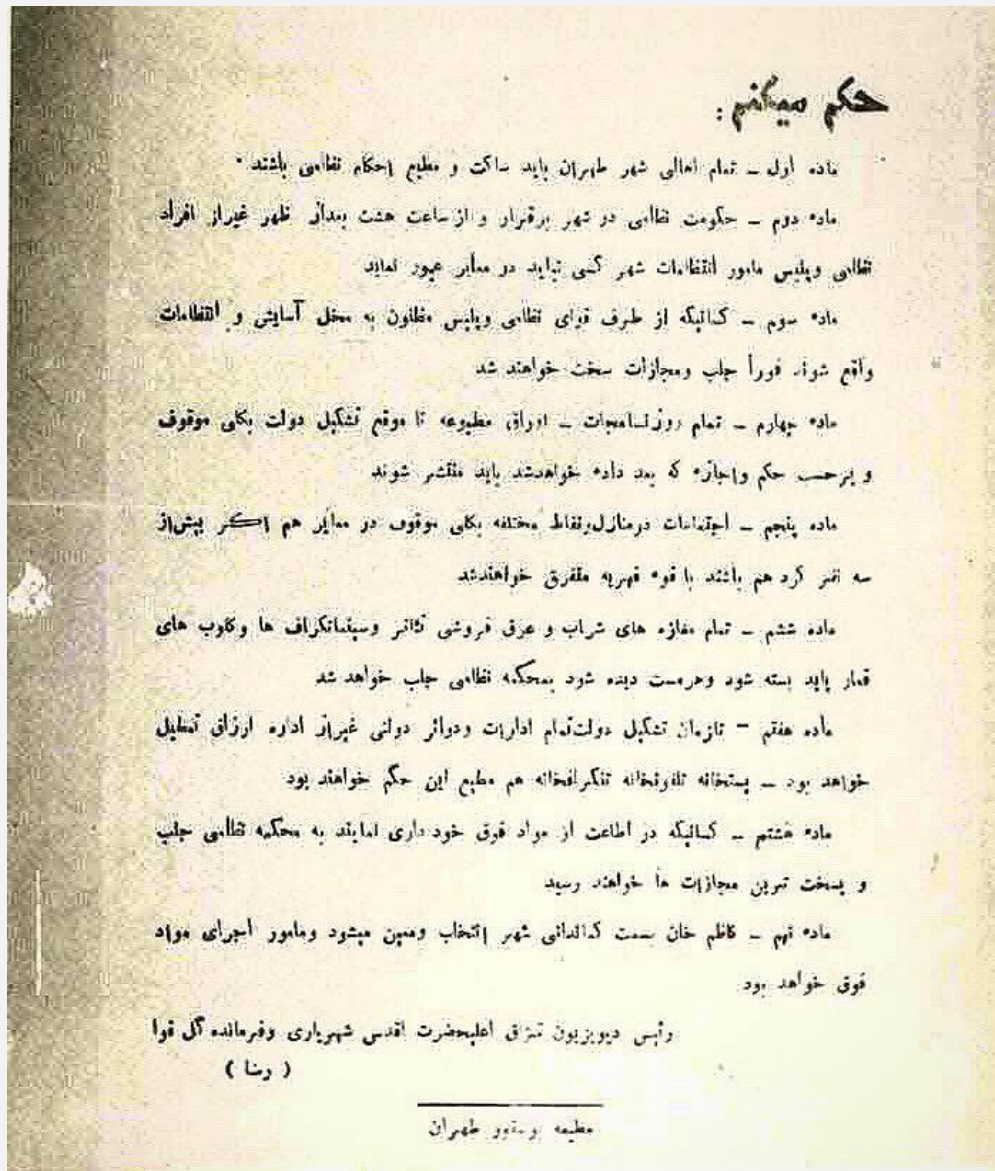 حکم میکنم :
ماده اول – تمام اهالی شهر طهران باید ساکت و مطیع احکام نظامی باشند .
ماده دوم – حکومت نظامی در شهر برقرار و از ساعت هشت بعداز ظهر غیراز افراد
نظامی وپلیس مامور انتظامات شهر کسی نباید در معابر عبور نماید
ماده سوم – کسانیکه از طرف قوای نظامی وپلیس مظنون به مخل آسایش و انتظامات
واقع شوند فوراً جلب ومجازات سخت خواهند شد
ماده چهارم – تمام روزنامجات – اوراق مطبوعه تا موقع تشکیل دولت بکلی موقوف
و برحسب حکم واجازه که بعد داده خواهدشد باید منتشر شوند
ماده پنجم – اجتماعات درمنازل ونقاط مختلفه بکلی موقوف در معابر هم اگر بیش از
سه نفر گرد هم باشند با قوه قهریه متفرق خواهندشد
ماده ششم – تمام مغازه های شراب و عرق فروشی تئاتر وسینماتگراف ها وکلوب های
قمار باید بسته شود وهرمست دیده شود بمحکمه نظامی جلب خواهد شد
مأده هفتم – تازمان تشکیل دولت تمام ادارات ودوائر دولتی غیراز اداره ارزاق تعطیل
خواهد بود – پستخانه تلفونخانه تلگرافخانه هم مطیع این حکم خواهند بود
ماده هشتم – کسانیکه در اطاعت از مواد فوق خود داری نمایند به محکمه نظامی جلب
و بسخت ترین مجازات ها خواهند رسید
ماده نهم – کاظم خان بسمت کماندانی شهر انتخاب ومعین میشود ومامور اجرای مواد
فوق خواهد بود
رئیس دیویزیون قزاق اعلیحضرت اقدس شهریاری وفرمانده کل قوا
( رضا )
مطبعه بوسفور طهران